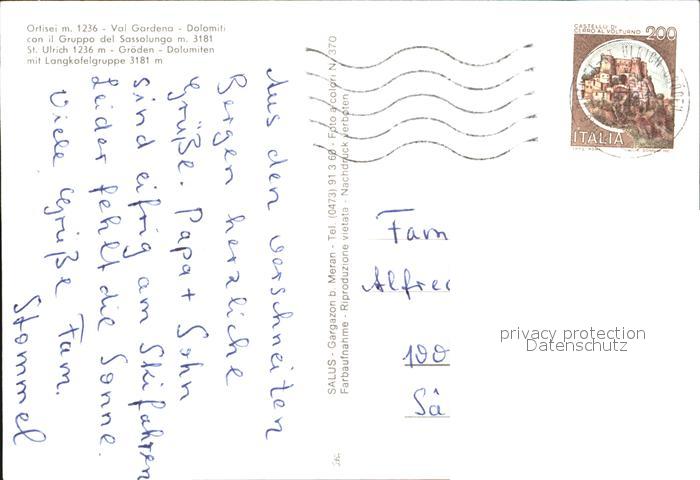 Ortisei m. 1236 - Val Gardena - Dolomiti
con il Gruppo del Sassolungo m. 3181
St. Ulrich 1236 m - Gröden - Dolumiten
mit Langkofelgruppe 3181 m
Aus den verschneiten
Bergen herzliche
Grüße. Papa + Sohn
sind eifrig am Skifahren
Leider fehlt die Sonne.
Viele Grüße Fam.
Stommel
SALUS - Gargazon b. Meran - Tel. (0473) 91 3 60 - Foto a colori N. 370
Farbaufnahme - Riproduzione vietata - Nachdruck verboten
CASTELLO DI
CERRO AL VOLTURNO
200
ITALIA
Fam
Alfred
100
Sä
privacy protection
Datenschutz